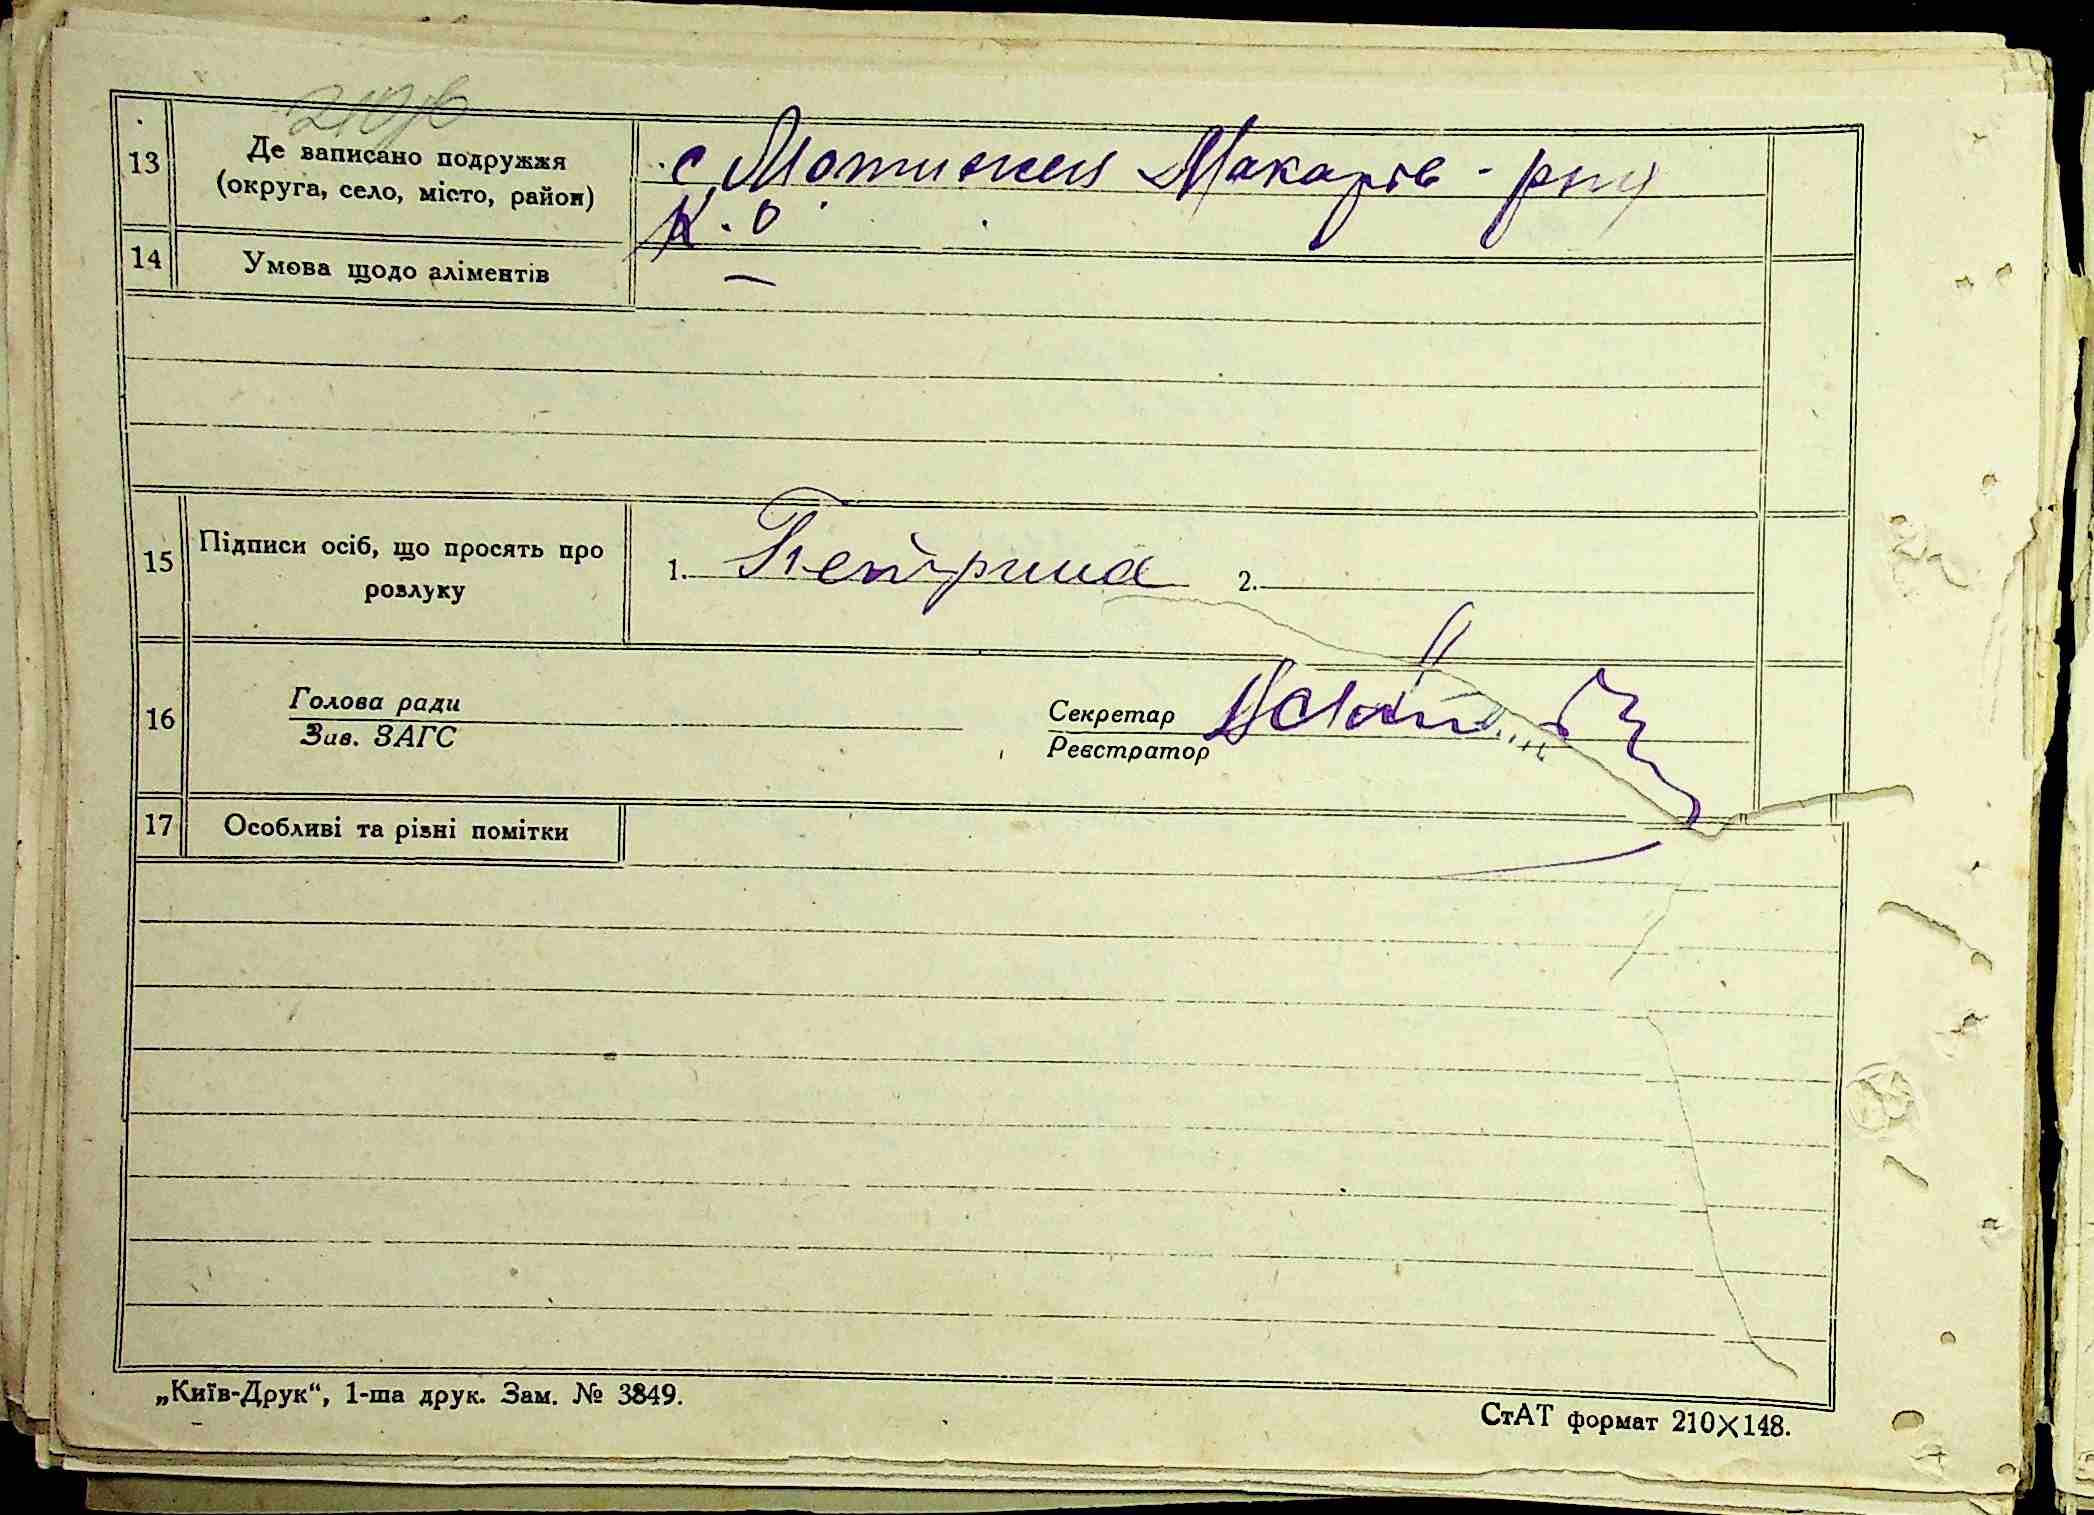 13
Де записано подружжя
(округа, село, місто, район)
с Мотижин Макарів - рну
К. О
14
Умова щодо аліментів
–
15
Підписи осіб, що просять про
розлуку
1. Петрина 2.
16
Голова ради
Зав. ЗАГС
Секретар
Реєстратор
17
Особливі та різні помітки
„Київ-Друк“, 1-ша друк. Зам. № 3849.
СтАТ формат 210×148.